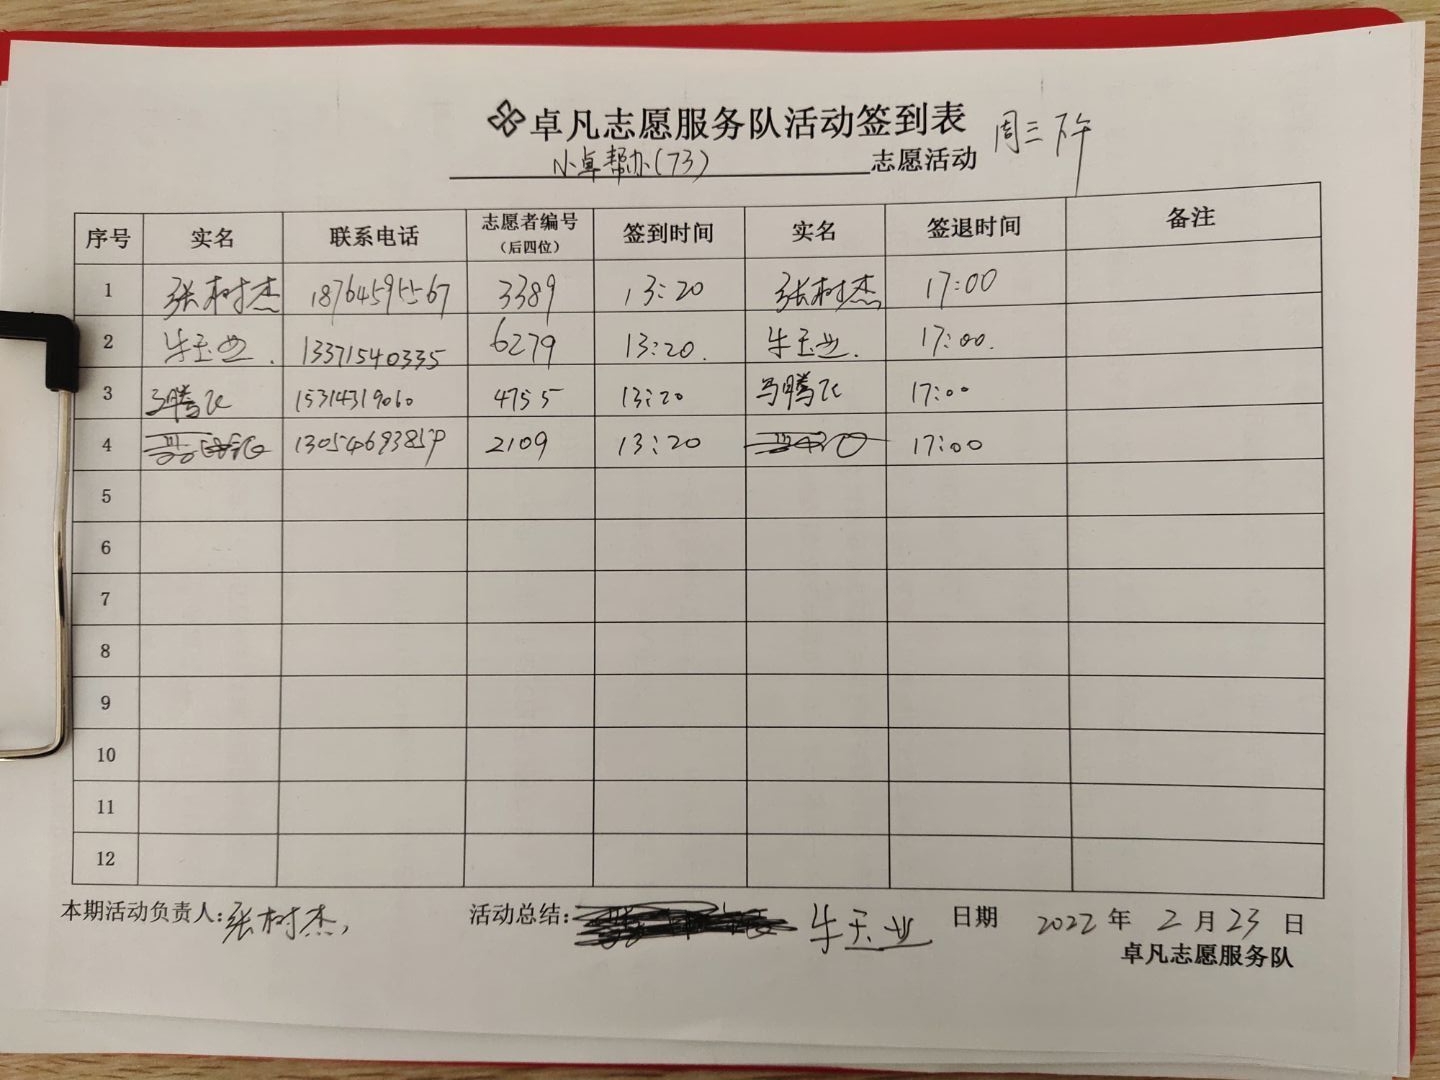 卓凡志愿服务队活动签到表 周三下午
小卓帮办(73) 志愿活动
序号 实名 联系电话 志愿者编号(后四位) 签到时间 实名 签退时间 备注
1 张树杰 18764595567 3389 13:20 张树杰 17:00
2 牛玉业. 13371540335 6279 13:20. 牛玉业. 17:00.
3 马腾飞 15314319060 4755 13:20 马腾飞 17:00
4 2109 13:20 17:00
5
6
7
8
9
10
11
12
本期活动负责人:张树杰, 活动总结: 牛玉业 日期 2022 年 2 月 23 日
卓凡志愿服务队